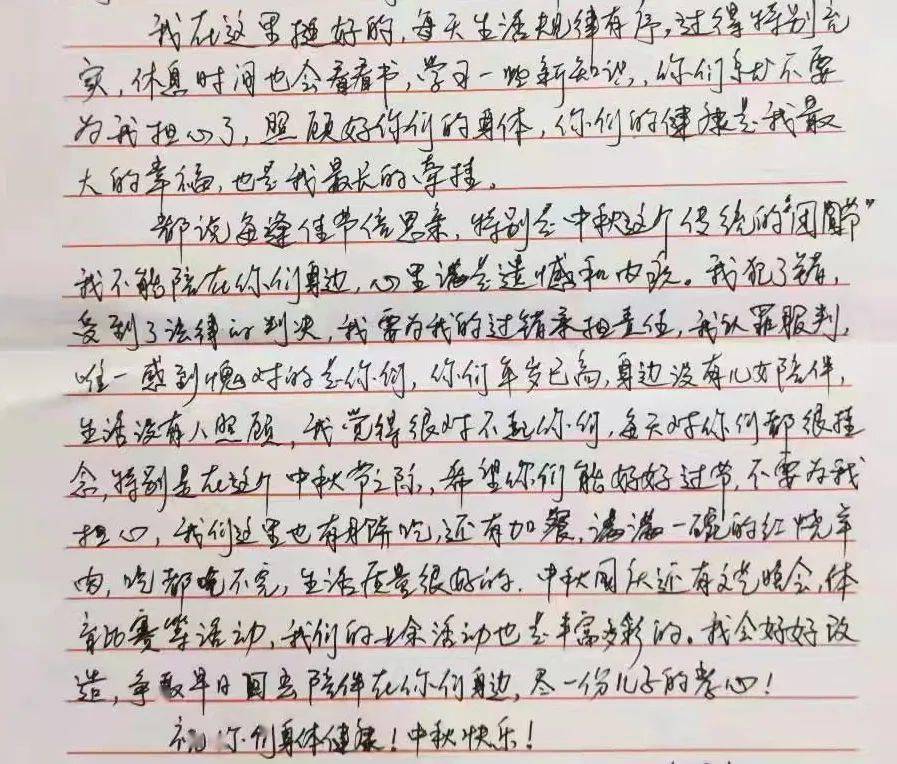 我在这里挺好的，每天生活规律有序，过得特别充
实，休息时间也会看看书，学习一些新知识，你们千万不要
为我担心了，照顾好你们的身体，你们的健康是我最
大的幸福，也是我最长的牵挂。
都说每逢佳节倍思亲，特别是中秋这个传统的“团圆节”
我不能陪在你们身边，心里满是遗憾和内疚。我犯了错，
受到了法律的判决，我需为我的过错承担责任，我认罪服判，
唯一感到愧对的是你们，你们年岁已高，身边没有儿女陪伴，
生活没有人照顾，我觉得很对不起你们，每天对你们都很挂
念，特别是在这个中秋节之际，希望你们能好好过节，不要为我
担心，我们这里也有月饼吃，还有加餐，满满一碗的红烧羊
肉，吃都吃不完，生活质量很好的。中秋国庆还有文艺晚会，体
育比赛等活动，我们的业余活动也是丰富多彩的。我会好好改
造，争取早日回去陪伴在你们身边，尽一份儿子的孝心！
祝你们身体健康！中秋快乐！